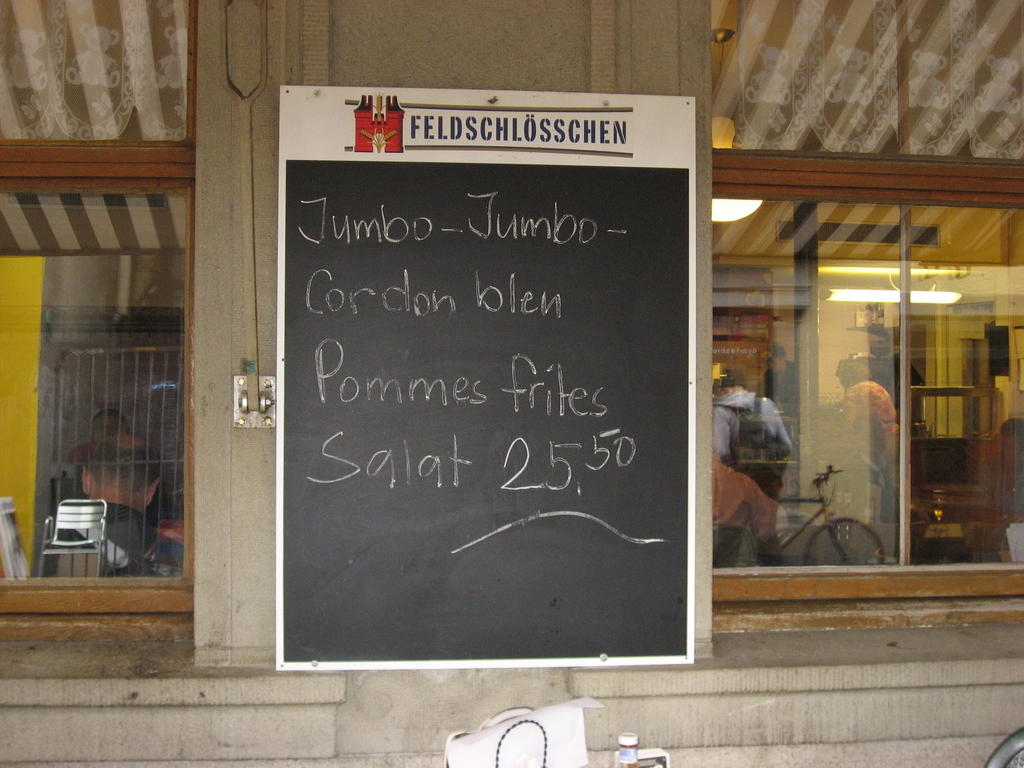 FELDSCHLÖSSCHEN
Jumbo-Jumbo-
Cordon bleu
Pommes frites
Salat 25,50